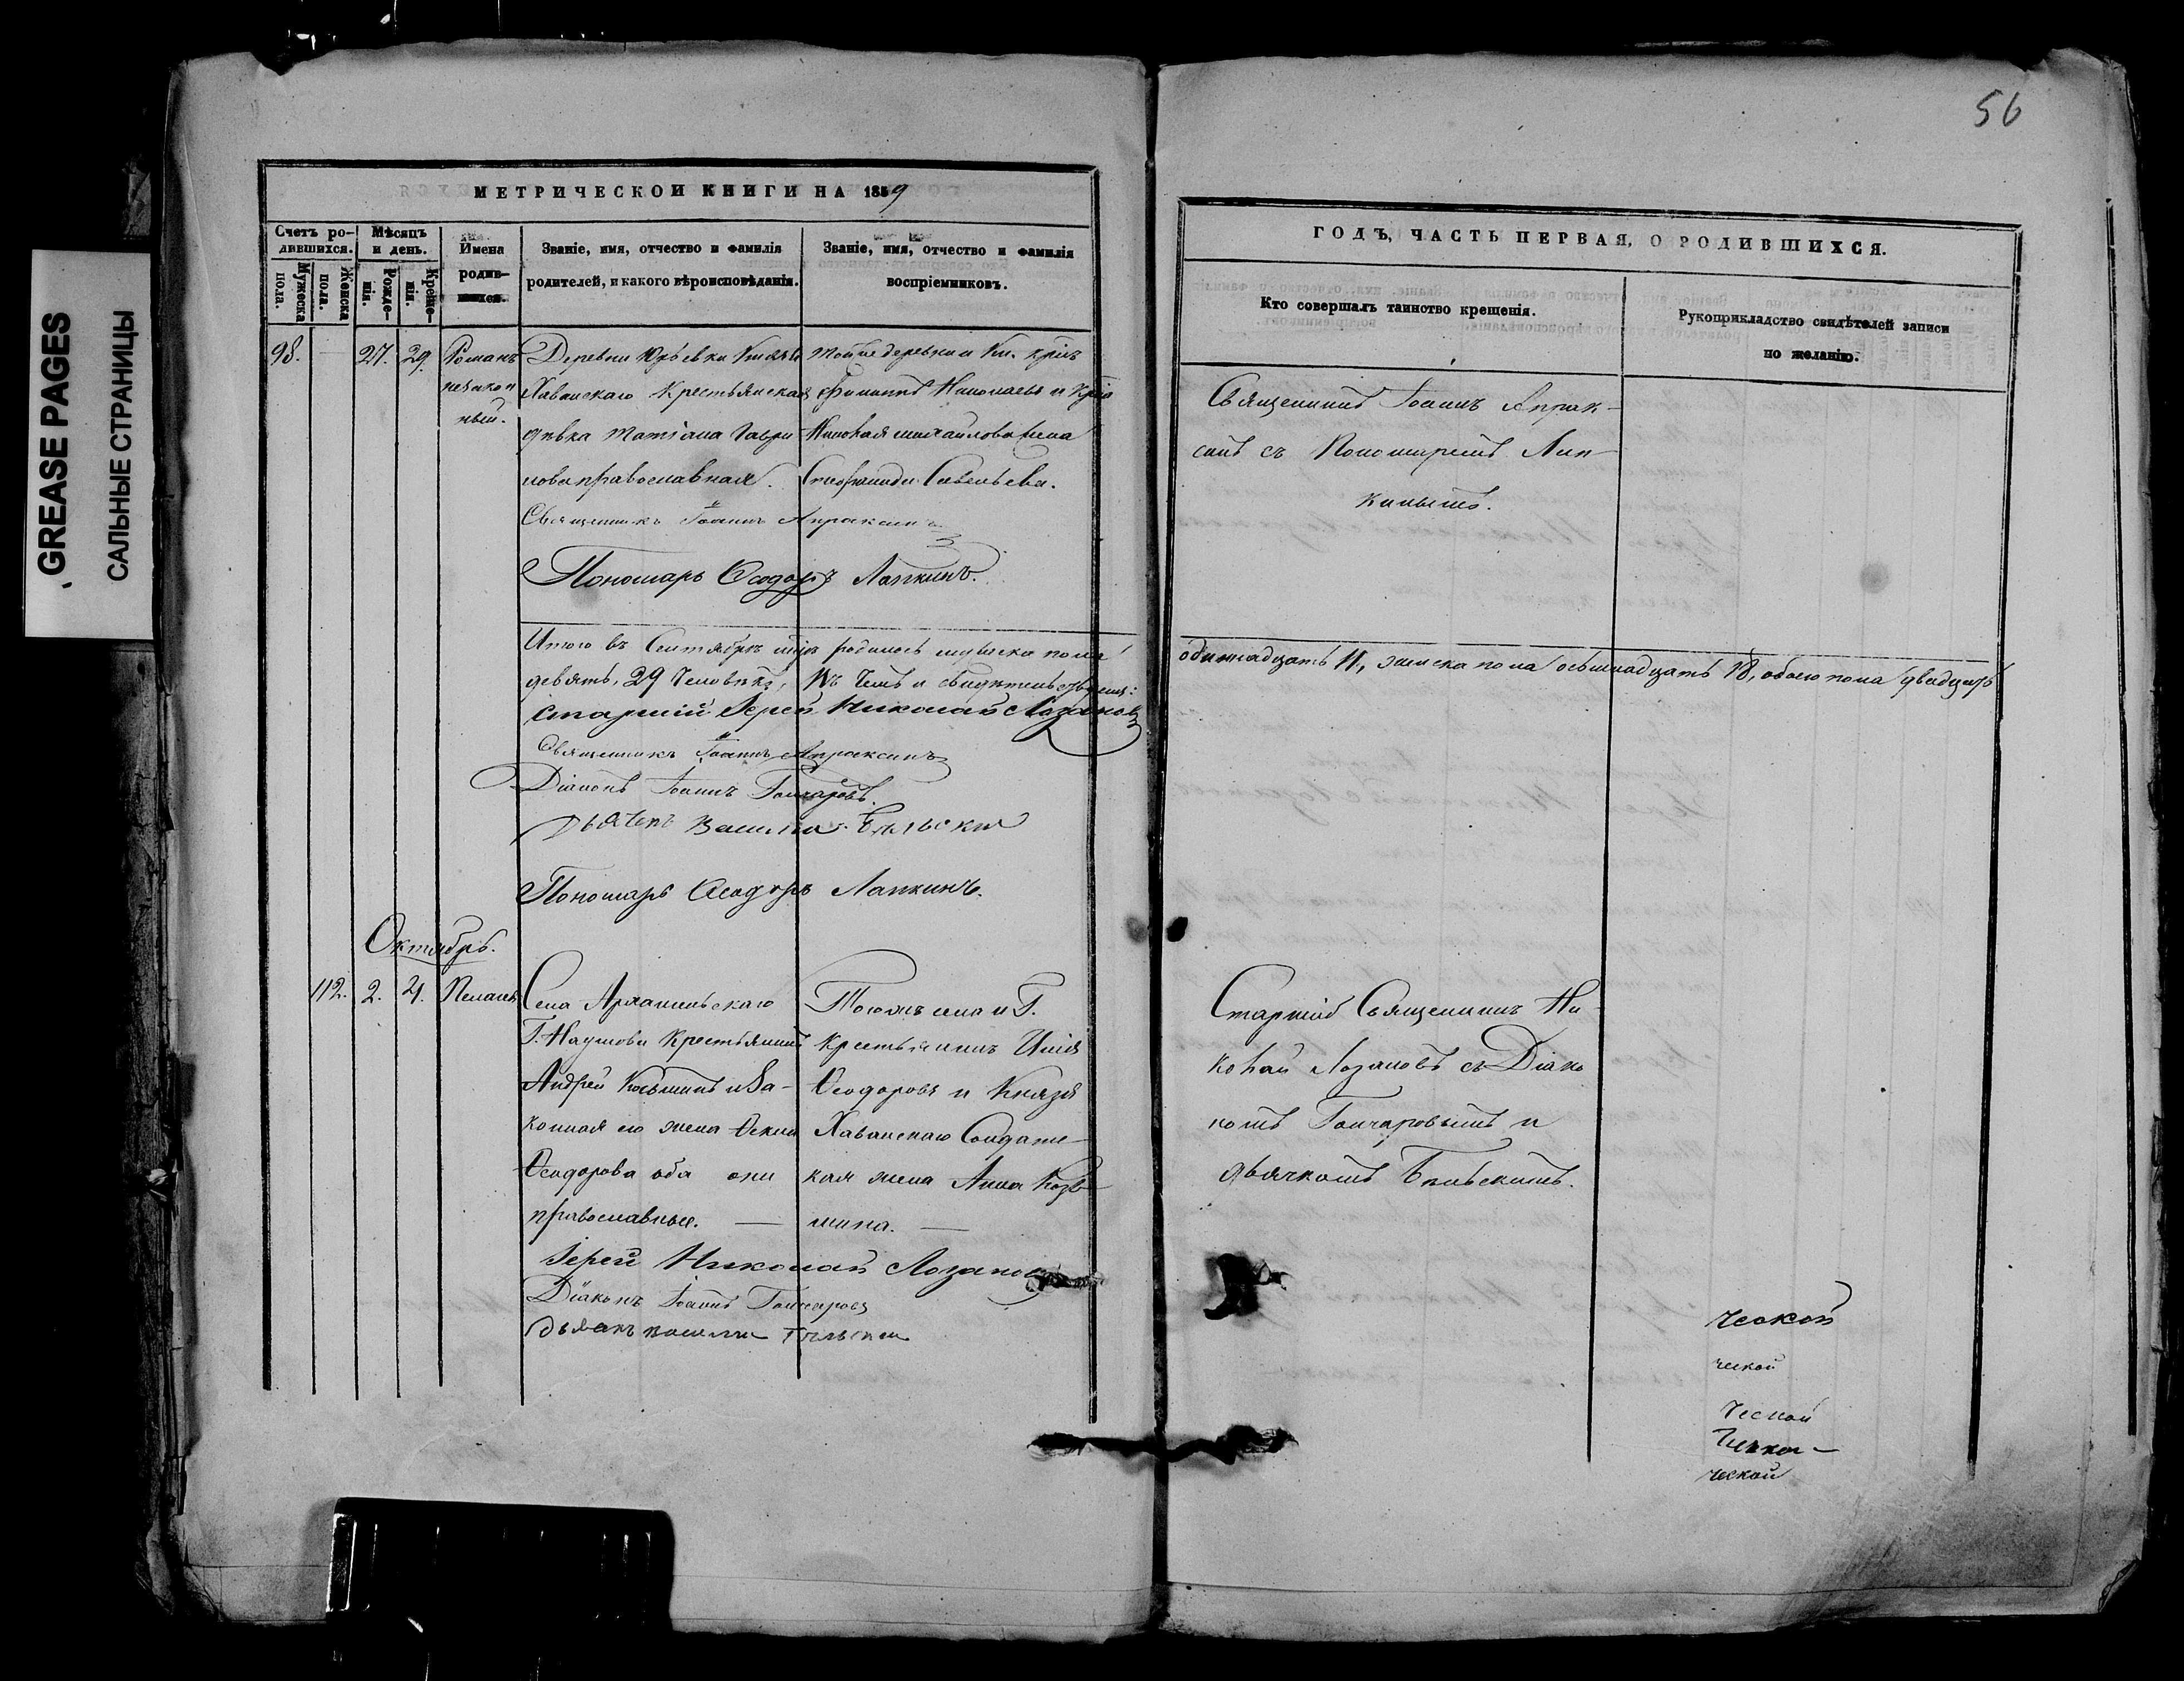 56
GREASE PAGES
САЛЬНЫЕ СТРАНИЦЫ
МЕТРИЧЕСКОЙ КНИГИ НА 1859
Счетъ ро-
дившихся.
Мужеска
пола.
Женска
пола.
Мѣсяцъ
и день.
Рожде-
нія.
Креще-
нія.
Имена
родив-
шихся.
Званіе, имя, отчество и фамилія
родителей, и какого вѣроисповѣданія.
Званіе, имя, отчество и фамилія
воспріемниковъ.
98.
27.
29.
Романъ
незакон
ный.
Деревни Юрьевки Князя
Хаванскаго Крестьянская
дѣвка Татіана Гаври
лова православная.
Тойже деревни и Кн.
Филиппъ Николаевъ и
Николая Михайлова жена
Савельева.
Священникъ Іоаннъ Апраксинъ
Пономарь Ѳеодоръ Лапкинъ.
Итого въ Сентябрѣ мцѣ родилось мужеска пола
девять, 29 Человѣкъ, Въ чемъ и свидѣтельствуемъ:
Старшій Іерей Николай Лозановъ
Священникъ Іоаннъ Апраксинъ
Діаконъ Іоаннъ Гончаровъ.
Дьячекъ Василій Бѣльскій
Пономарь Ѳеодоръ Лапкинъ.
Октябрь.
112.
2.
4.
Пелагея
Села Архангельскаго
Г. Наумова Крестьянинъ
Андрей Козьминъ и За-
конная его жена Ѳекла
Ѳеодорова оба они
православные. —
Тогожъ села и Г.
Крестьянинъ Илія
Ѳеодоровъ и Князя
Хаванскаго Солдатс-
кая жена Анна Козь-
мина. —
Іерей Николай Лозановъ
Діаконъ Іоаннъ Гончаровъ
Дьячекъ Василій Бѣльскій
ГОДЪ, ЧАСТЬ ПЕРВАЯ, О РОДИВШИХСЯ.
Кто совершалъ таинство крещенія.
Рукоприкладство свидѣтелей записи
по желанію.
Священникъ Іоаннъ Апрак-
синъ съ Пономаремъ Лап-
кинымъ.
одиннадцать 11, женска пола осьмнадцать 18, обоего пола двадцать
Старшій Священникъ Ни-
колай Лозановъ съ Діако
номъ Гончаровымъ и
дьячкомъ Бѣльскимъ.
ческой
ческой
ческой
ческой